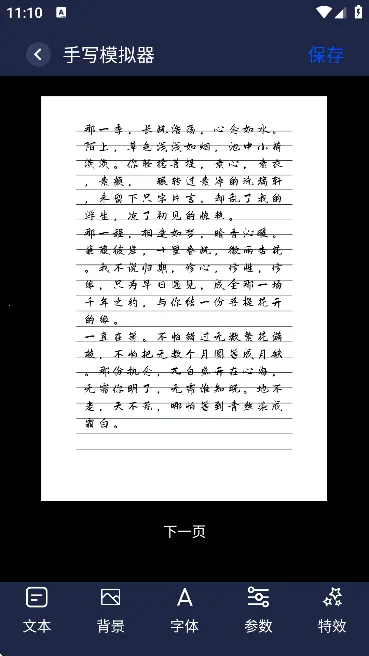 11:10
手写模拟器
保存
那一季，长风浩荡，心念如水。
陌上，草色浅浅如烟，池中小荷
淡淡。你轻捻菩提，素心，素衣
，素颜，
，未留下只字片言。却乱了我的
浮生，凉了初见的惊艳。
那一程，相逢如梦，暗香沁暖。
蒹葭彼岸，十里春风，微雨杏花
。我不说归期，修心，修性，修
缘，只为早日遇见，成全那一场
千年之约，与你结一份菩提花开
的缘。
一直在等。不怕错过无数繁花满
枝，不怕把无数个月圆等成月缺
。那份执念，兀自盛开在心海，
无需你明了，无需谁知晓。地不
老，天不荒，哪怕等到青丝染成
霜白。
下一页
文本
背景
字体
参数
特效